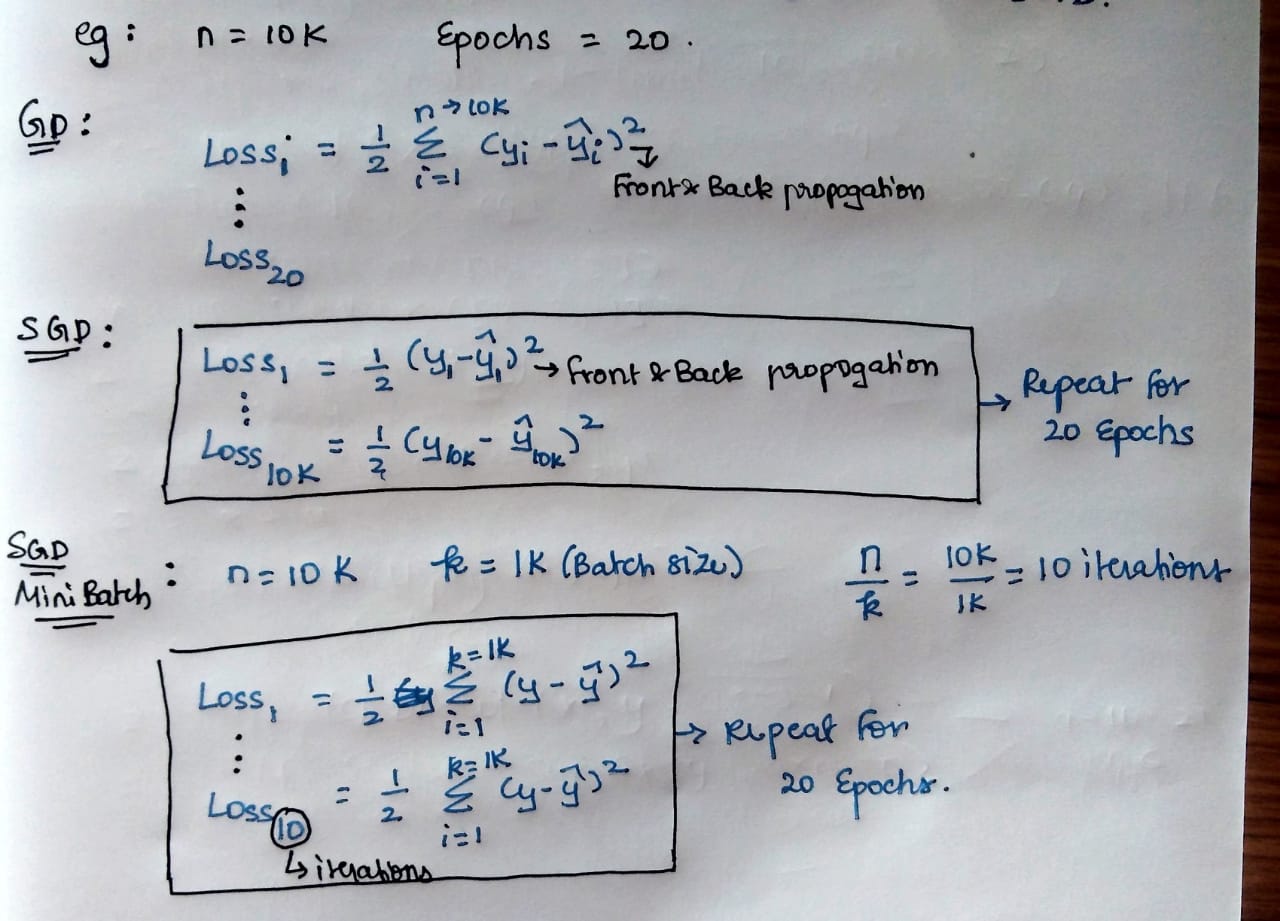 eg : n = 10K Epochs = 20 .
GD :
n → 10K
Loss₁ = 1/2 Σ (yᵢ - ŷᵢ)²
i=1
↓
Front & Back propogation
⋮
Loss₂₀
SGD :
Loss₁ = 1/2 (y₁ - ŷ₁)² → Front & Back propogation
⋮
Loss₁₀K = 1/2 (y₁₀K - ŷ₁₀K)²
→ Repeat for
20 Epochs
SGD
Mini Batch : n = 10 K k = 1K (Batch size) n/k = 10K/1K = 10 iterations
k = 1K
Loss₁ = 1/2 Σ (y - ŷ)²
i=1
⋮
k = 1K
Loss₁₀ = 1/2 Σ (y - ŷ)²
i=1
↳ iterations
→ Repeat for
20 Epochs.